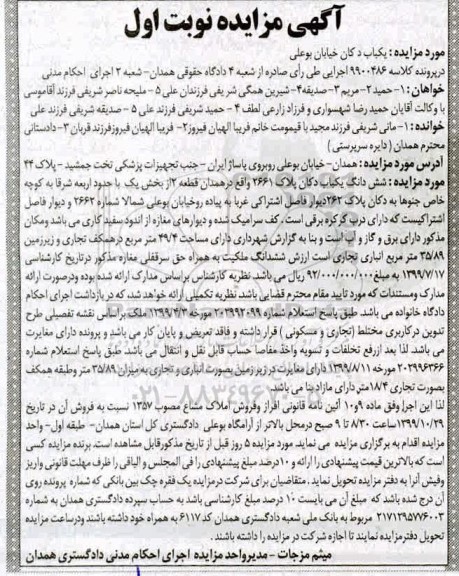 آگهی مزایده نوبت اول
مورد مزایده : یکباب دکان خیابان بوعلی
در پرونده کلاسه 9900486 اجرایی طی رأی صادره از شعبه 4 دادگاه حقوقی همدان- شعبه 2 اجرای احکام مدنی
خواهان : 1- حمید 2- مریم 3- صدیقه 4- شیرین همگی شریفی فرزندان علی 5 - ملیحه ناصر شریفی فرزند آقاموسی
با وکالت آقایان حمید رضا شهسواری و فرزاد زارعی لطف 4 - حمید شریفی فرزند علی 5 - صدیقه شریفی فرزند علی
خوانده : 1- مانی شریفی فرزند مجید با قیمومت خانم فریبا الهیان فیروز 2- فریبا الهیان فیروز فرزند قربان 3- دادستانی
محترم همدان ( دایره سرپرستی )
آدرس مورد مزایده : همدان- خیابان بوعلی روبروی پاساژ ایران - جنب تجهیزات پزشکی تخت جمشید - پلاک 44
مورد مزایده : شش دانگ یکباب دکان پلاک 2661 واقع در همدان قطعه 2 از بخش یک با حدود اربعه شرقا به کوچه
خاص جنوبا به دکان پلاک 262 دیوار فاصل اشتراکی غربا به پیاده رو خیابان بوعلی شمالا شماره 2662 و دیوار فاصل
اشتراکیست که دارای درب کرکره برقی است . کف سرامیک شده و دیوارهای مغازه از اندود سفید کاری می باشد ومکان
مذکور دارای برق و گاز و آب است و بنا به گزارش شهرداری دارای مساحت 49/4 متر مربع در همکف تجاری و زیرزمین
35/89 متر مربع انباری تجاری است ارزش ششدانگ ملکیت به همراه حق سرقفلی مغازه مذکور در تاریخ کارشناسی
1399/7/17 به مبلغ 92/000/000/000 ریال می باشد. نظریه کارشناس براساس مدارک ارائه شده بوده ودرصورت ارائه
مدارک ومستندات که مورد تایید مقام محترم قضایی باشد نظریه تکمیلی ارائه خواهد شد. که در بازداشت اجرای احکام
دادگاه خانواده می باشد. طبق پاسخ استعلام شماره 20399209 مورخه 1399/4/3 ملک براساس نقشه تفصیلی طرح
تدوین در کاربری مختلط (تجاری و مسکونی ) قرار داشته و فاقد تعریض و پایان کار می باشد و پرونده دارای مغایرت
می باشد. لذا بعد از رفع تخلفات و تسویه واخذ مفاصا حساب قابل نقل و انتقال می باشد. طبق پاسخ استعلام شماره
202996366 مورخه 1399/8/11 دارای مغایرت در زیر زمین بصورت انباری و تجاری به میزان 35/89 متر وطبقه همکف
بصورت تجاری 18/4 متر دارای مازاد بنا می باشد.
لذا این اجرا وفق ماده 9 و10 آئین نامه قانونی افراز وفروش املاک مشاع مصوب 1357 نسبت به فروش آن در تاریخ
1399/10/29 ساعت 8/30 تا 9 صبح درمحل بالاتر از آرامگاه بوعلی دادگستری کل استان همدان- طبقه اول- واحد
مزایده اقدام به برگزاری مزایده می نماید. مورد مزایده 5 روز قبل از تاریخ مذکور قابل مشاهده است. برنده مزایده کسی
است که بالاترین قیمت پیشنهادی را ارائه و 10 درصد مبلغ پیشنهادی را فی المجلس و الباقی را ظرف مهلت قانونی واریز
وفیش آنرا به دفتر مزایده تحویل نماید . متقاضیان برای شرکت درمزایده یک فقره چک بین بانکی که شماره پرونده روی
آن درج شده باشد که مبلغ آن می بایست 10 درصد مبلغ کارشناسی باشد به حساب سپرده دادگستری همدان به شماره
2171295776003 مربوط به بانک ملی شعبه دادگستری همدان کد 6117 به همراه خود داشته باشند ودرساعت مزایده
تحویل دفتر مزایده نمایند تا اجازه شرکت در مزایده را داشته باشند.
میثم مزجات - مدیر واحد مزایده اجرای احکام مدنی دادگستری همدان